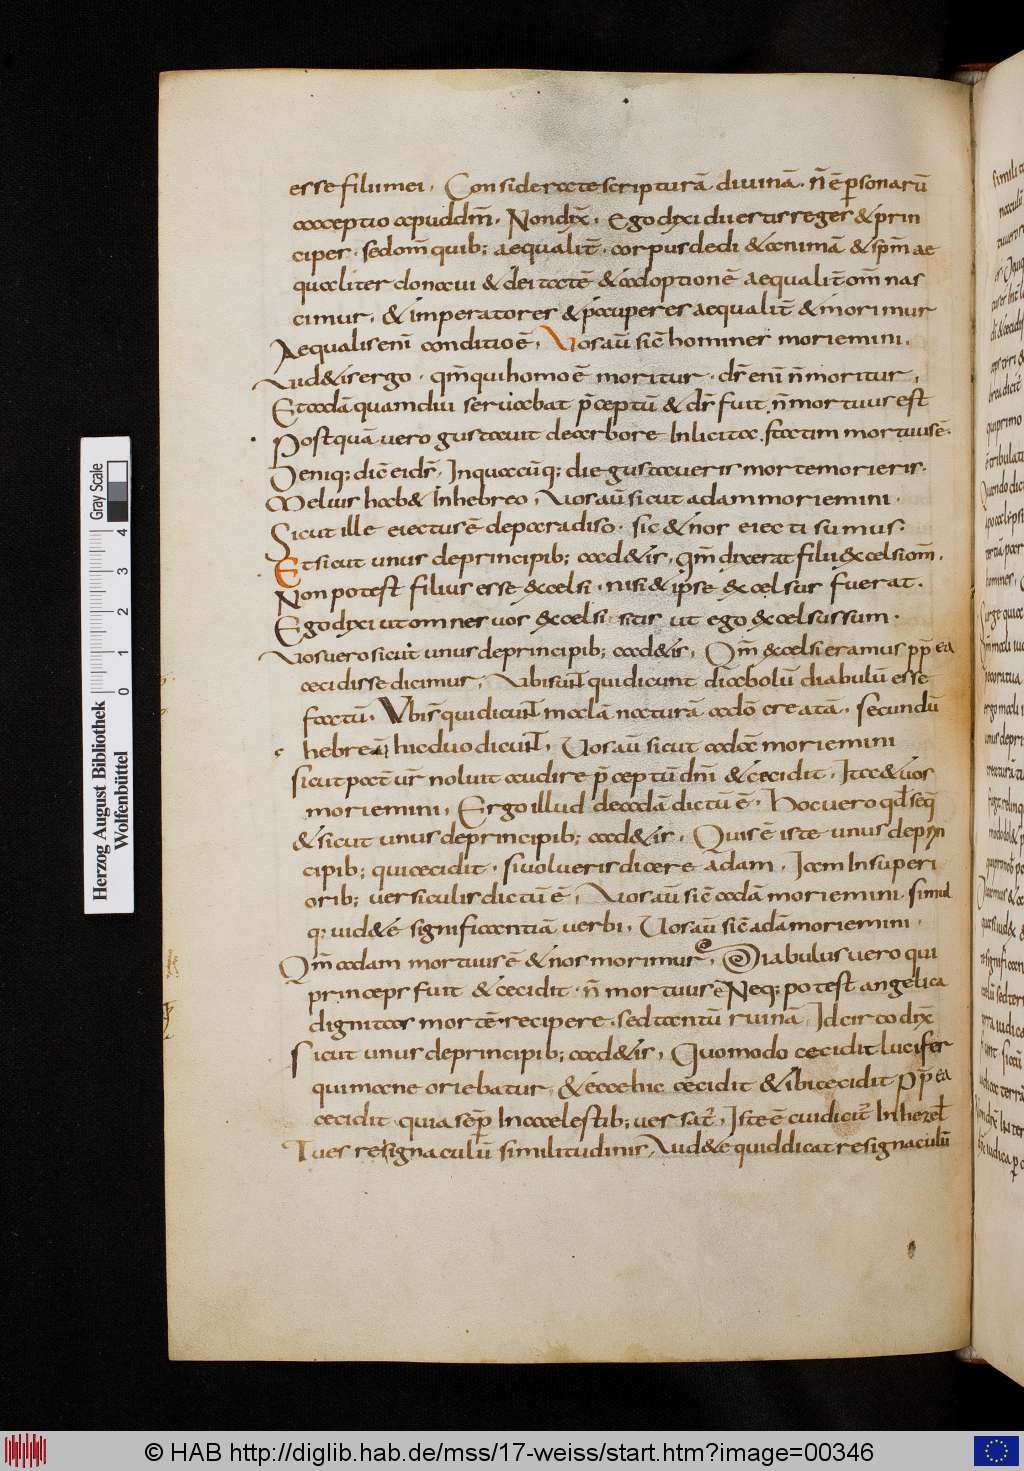 esse filii mei. Considerate scripturā divinā. n̄ ē p̱sonarū
acceptio apud dm̄. Non dix̄. Ego dixi dii estis reges & prin
cipes. sed om̄ quib; aequalit̄. corpus dedi & animā & sp̄m ae
qualiter donavi & deitatē & adoptionē aequalit̄ om̄ nas
cimur. & imperatores & pauperes aequalit̄ & morimur
Aequalis enī conditio ē. Vos aū sic̄ homines moriemini.
Vid&is ergo. qm̄ qui homo ē moritur. ds̄ enī n̄ moritur.
Et adā quamdiu servabat p̄ceptū & ds̄ fuit n̄ mortuus est
Postquā vero gustavit de arbore inlicita. statim mortuus ē.
Deniq; dic̄ ei ds̄. In quacūq; die gustaveris morte morieris.
Melius hab& in hebreo. Vos aū sicut adam moriemini.
Sicut ille eiectus ē de paradiso. sic & nos eiecti sumus.
Et sicut unus de principib; cad&is. qm̄ dixerat filii excelsi om̄.
Non potest filius esse excelsi. nisi & ipse excelsus fuerat.
Ego dixi ut omnes vos excelsi sitis ut ego excelsus sum.
Vos vero sicut unus de principib; cad&is. Qm̄ excelsi eramus pp̄ ea
cecidisse dicimur. Ubi sunt qui dicunt diabolū diabulū esse
factū. Ubi s̄ qui dicunt malā naturā a dō creatā. secundū
hebreā hic duo dicunt. Vos aū sicut adā moriemini
sicut pat̄ ur̄ noluit audire p̄ceptū dn̄i & cecidit. Ita & vos
moriemini. Ergo illud de adā dictū ē. Hoc vero qd̄ seq̄
& sicut unus de principib; cad&is. Quis ē iste unus de prin
cipib; qui cecidit. si volueris dicere adam. Iam in superi
orib; versiculis dictū ē. Vos aū sic̄ adā moriemini. simul
q; vid&e significantiā verbi. Vos aū sic̄ adā moriemini.
Qm̄ adam mortuus ē & nos morimur. Diabulus vero qui
princeps fuit & cecidit. n̄ mortuus ē Neq; potest angelica
dignitas mortē recipere. sed tantū ruinā Idcirco dix̄
Sicut unus de principib; cad&is. Quomodo cecidit lucifer
qui mane oriebatur. & ecce hic cecidit & ibi cecidit pp̄ ea
cecidit. quia sēp̱ in caelestib; versat̄. Iste ē cui dicit̄ in hezel
Tu es resignaculū similitudinis. Vid&e quid dicat resignaculū
Gray Scale
0 1 2 3 4
Herzog August Bibliothek
Wolfenbüttel
© HAB http://diglib.hab.de/mss/17-weiss/start.htm?image=00346